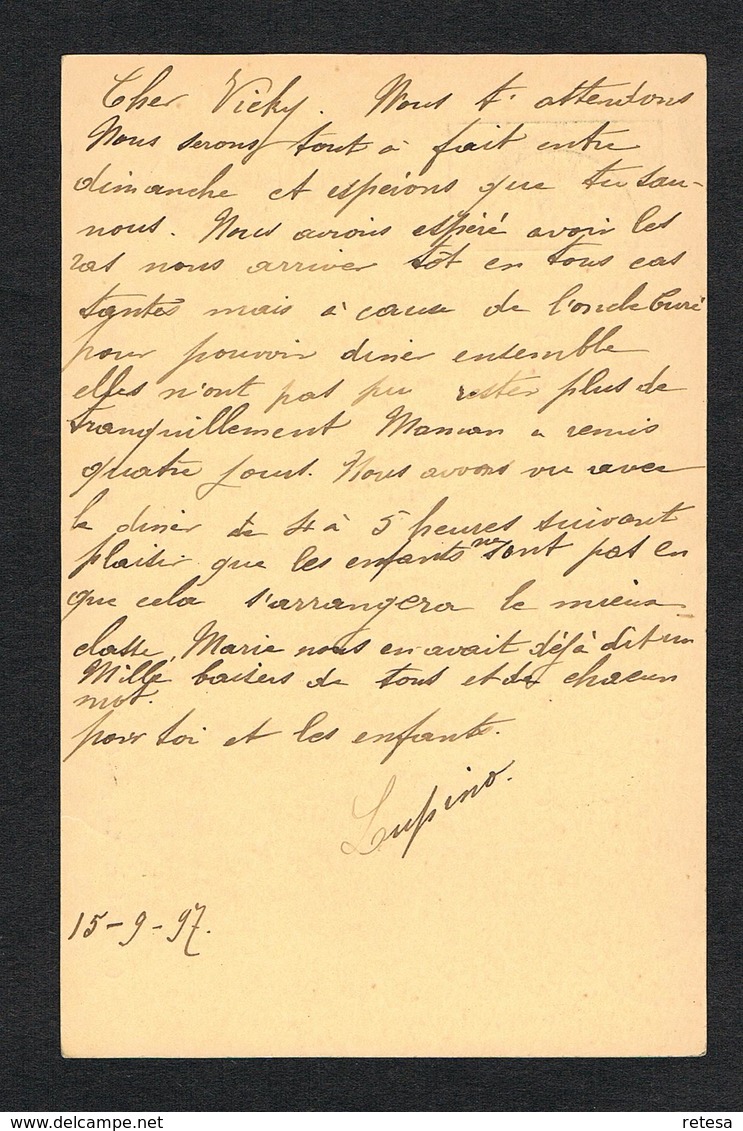 Cher Vicky. Nous t'attendons
Nous serons tout à fait entre
dimanche et espérons que tu sau-
nous. Nous avions espéré avoir les
ras nous arriver tôt en tous cas
tantes mais à cause de l'oncle Curé
pour pouvoir diner ensemble
elles n'ont pas pu rester plus de
tranquillement Maman a remis
quatre jours. Nous avons vu avec
le diner de 4 à 5 heures suivant
plaisir que les enfants ne sont pas en
que cela s'arrangera le mieux
classe, Marie nous en avait déjà dit un
Mille baisers de tous et de chacun
mot.
pour toi et les enfants.
Lupino.
15-9-97.
retesa
delcampe.net